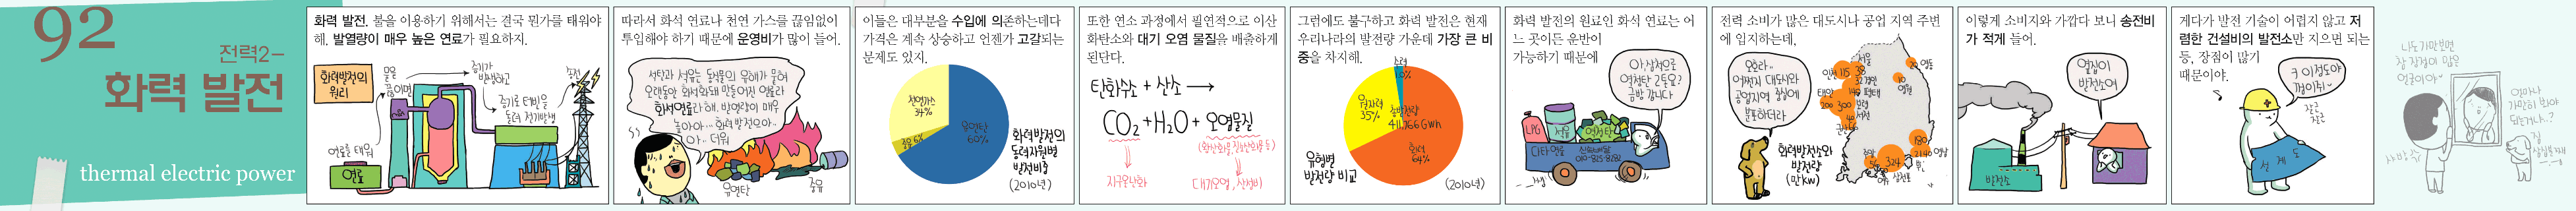 92
전력2-
화력 발전
thermal electric power
화력 발전. 불을 이용하기 위해서는 결국 뭔가를 태워야
해. 발열량이 매우 높은 연료가 필요하지.
화력발전의
원리
물을
끓이면
증기가
발생하고
송전
증기로 터빈을
돌려 전기발생
연료를 태워
연료
따라서 화석 연료나 천연 가스를 끊임없이
투입해야 하기 때문에 운영비가 많이 들어.
석탄과 석유는 동식물의 유해가 묻혀
오랜동안 화석화돼 만들어진 연료라
화석연료라 해. 발열량이 매우
높아아... 화력발전으아..
아아.. 더워
유연탄
중유
이들은 대부분을 수입에 의존하는데다
가격은 계속 상승하고 언젠가 고갈되는
문제도 있지.
천연가스
34%
중유 6%
유연탄
60%
화력발전의
동력자원별
발전비중
(2010년)
또한 연소 과정에서 필연적으로 이산
화탄소와 대기 오염 물질을 배출하게
된단다.
탄화수소 + 산소 →
CO₂ + H₂O + 오염물질
(황산화물, 질소산화물 등)
지구온난화
대기오염, 산성비
그럼에도 불구하고 화력 발전은 현재
우리나라의 발전량 가운데 가장 큰 비
중을 차지해.
수력
1%
원자력
35%
총발전량
411,766 Gwh
화력
64%
유형별
발전량 비교
(2010년)
화력 발전의 원료인 화석 연료는 어
느 곳이든 운반이
가능하기 때문에
아, 삼척으로
영청탄 2톤요?
금방 갑니다
LPG
석유
유연탄
다타연료
신속배달
전력 소비가 많은 대도시나 공업 지역 주변
에 입지하는데,
오호라..
어쩌지 대도시와
공업지역 중심에
분포하더라
화력발전소와
발전량
(만kw)
서울
38
인천 115
20 영동
10
영월
태안
평택
300
보령
40 서천
180
영남
324
삼천포
여수
이렇게 소비지와 가깝다 보니 송전비
가 적게 들어.
옆집이
발전소여
발전소
게다가 발전 기술이 어렵지 않고 저
렴한 건설비의 발전소만 지으면 되는
등, 장점이 많기
때문이야.
ㅋ 이정도야
껌이쥐~
설계도
나도 가만보면
참 장점이 많은
얼굴이야~
얼마나
가만히 봐야
되는거냐..?